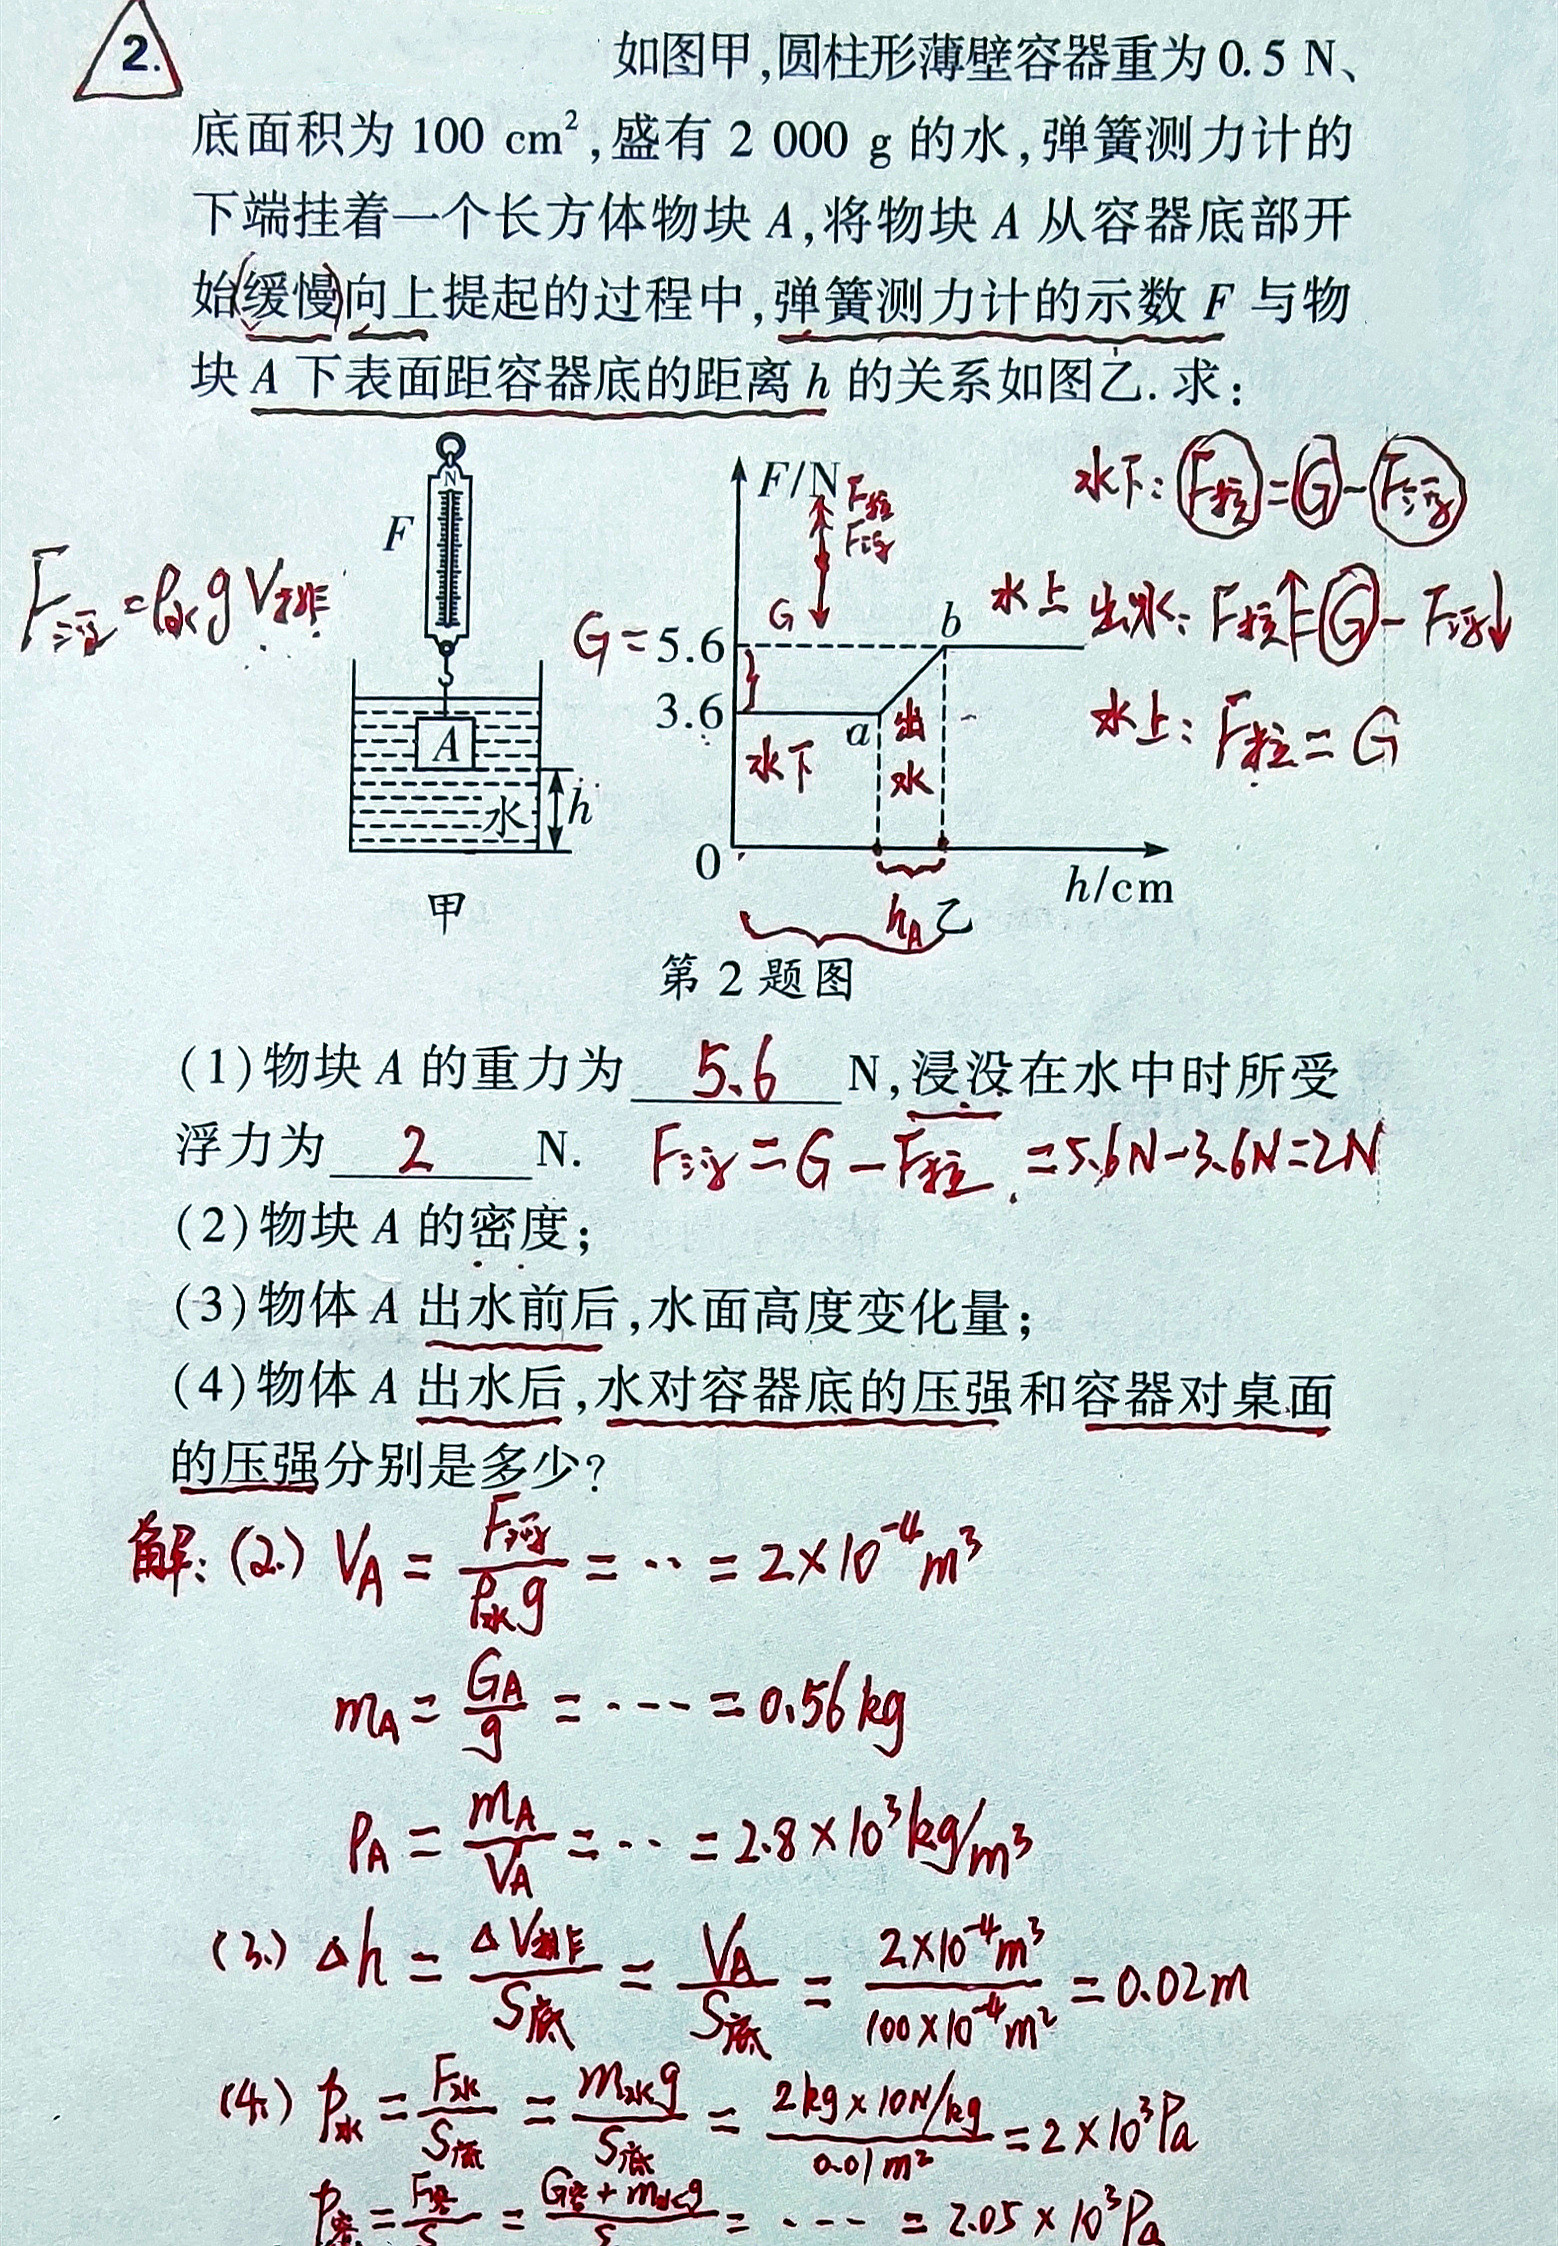 2.
如图甲,圆柱形薄壁容器重为0.5 N、
底面积为 100 cm²,盛有 2 000 g 的水,弹簧测力计的
下端挂着一个长方体物块 A,将物块 A 从容器底部开
始(缓慢)向上提起的过程中,弹簧测力计的示数 F 与物
块 A 下表面距容器底的距离 h 的关系如图乙.求:
F浮=ρ水gV排
N
F
A
水
h
甲
F/N
F拉
F浮
G
G=5.6
3.6
0
水下
a
出水
b
水上
h/cm
hA
乙
水下:F拉=G-F浮
出水:F拉↑=G-F浮↓
水上:F拉=G
第 2 题图
(1)物块 A 的重力为 5.6 N,浸没在水中时所受
浮力为 2 N. F浮=G-F拉=5.6N-3.6N=2N
(2)物块 A 的密度;
(3)物体 A 出水前后,水面高度变化量;
(4)物体 A 出水后,水对容器底的压强和容器对桌面
的压强分别是多少?
解:(2.) VA = F浮/ρ水g = ·· = 2×10⁻⁴m³
mA = GA/g = ---- = 0.56kg
ρA = mA/VA = ·· = 2.8×10³kg/m³
(3.) Δh = ΔV排/S底 = VA/S底 = 2×10⁻⁴m³/100×10⁻⁴m² = 0.02m
(4.) p水 = F水/S底 = m水g/S底 = 2kg×10N/kg/0.01m² = 2×10³Pa
p容 = F容/S = G容+m水g/S = ---- = 2.05×10³Pa